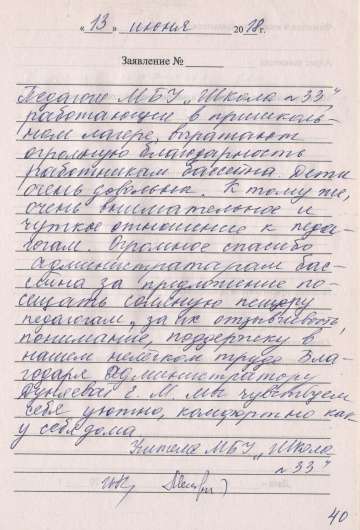 « 13 » июня 2018 г.
Заявление №
Педагоги МБУ „Школа №33"
работающии в пришколь-
ном лагере, выражают
огромную благодарность
работникам бассейна. Дети
очень довольны. К тому же,
очень внимательное и
чуткое отношение к педа-
гогам. Огромное спасибо
администраторам бас-
сейна за предложение по-
сещать соляную пещеру
педагогам, за их отзывчивость,
понимание, поддержку в
нашем нелегком труде. Бла-
годаря администратору
Е. М. мы чувствуем
себя уютно, комфортно как
у себя дома.
Учителя МБУ „Школа
№33"
40